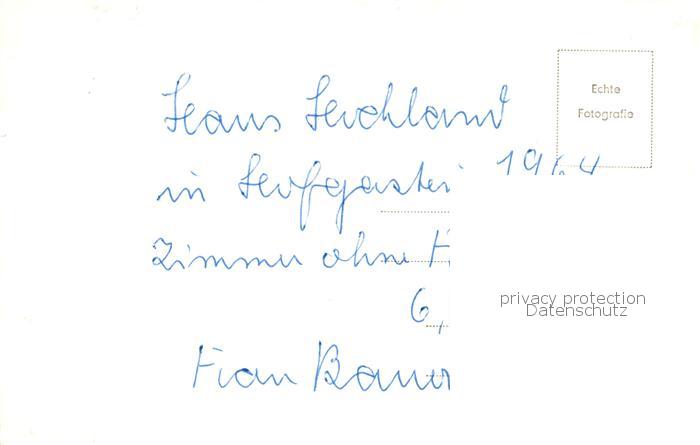 Echte
Fotografie
Haus Hochland
in Hofgastei 1964
Zimmer ohne F
6,
Frau Bauer
privacy protection
Datenschutz